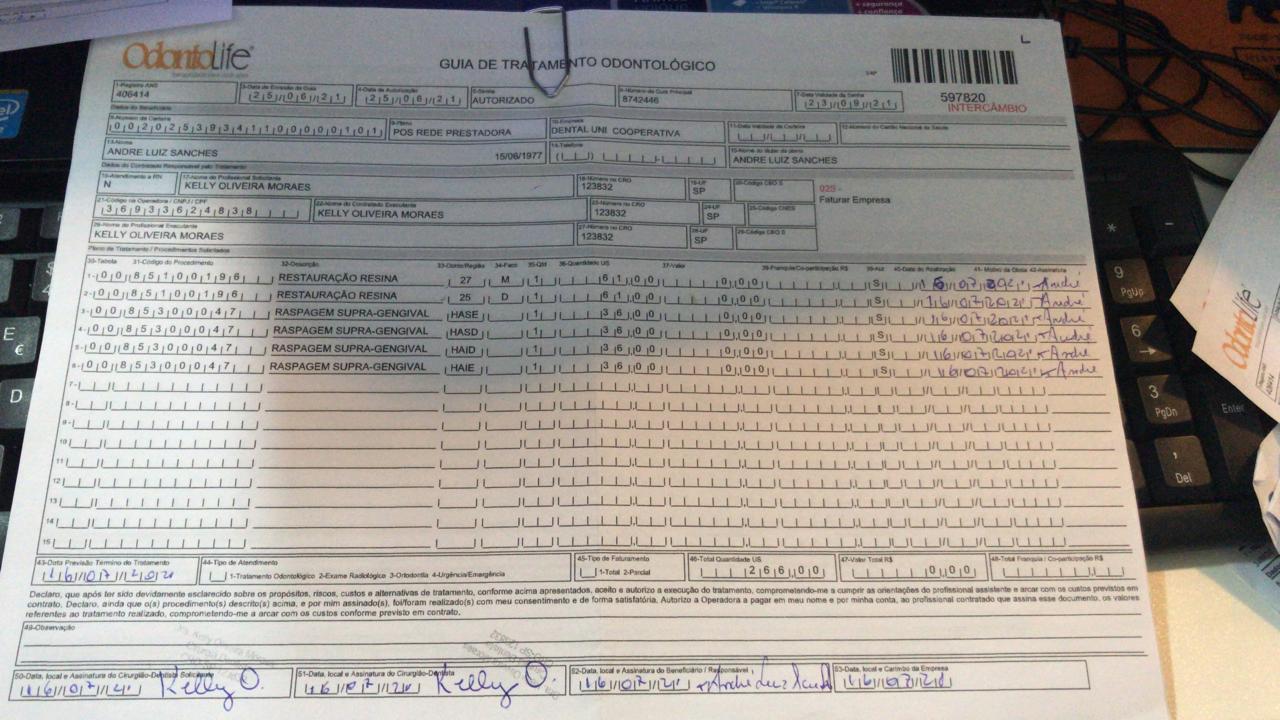 + segurança
+ confiança
OdontoLife
GUIA DE TRATAMENTO ODONTOLÓGICO
L
597820
INTERCÂMBIO
1-Registro ANS
406414
3-Data de Emissão da Guia
25/06/21
4-Data de Autorização
25/06/21
5-Senha
AUTORIZADO
6-Número da Guia Principal
8742446
7-Data Validade da Senha
23/09/21
Dados do Beneficiário
8-Número da Carteira
00202539341100000101
9-Plano
POS REDE PRESTADORA
10-Empresa
DENTAL UNI COOPERATIVA
11-Data Validade da Carteira
12-Número do Cartão Nacional de Saúde
13-Nome
ANDRE LUIZ SANCHES 15/06/1977
14-Telefone
15-Nome do titular do plano
ANDRE LUIZ SANCHES
Dados do Contratado Responsável pelo Tratamento
16-Atendimento a RN
N
17-Nome do Profissional Solicitante
KELLY OLIVEIRA MORAES
18-Número no CRO
123832
19-UF
SP
20-Código CBO S
025 -
Faturar Empresa
21-Código na Operadora / CNPJ / CPF
36933624838
22-Nome do Contratado Executante
KELLY OLIVEIRA MORAES
23-Número no CRO
123832
24-UF
SP
25-Código CNES
26-Nome do Profissional Executante
KELLY OLIVEIRA MORAES
27-Número no CRO
123832
28-UF
SP
29-Código CBO S
Plano de Tratamento / Procedimentos Solicitados
30-Tabela 31-Código do Procedimento 32-Descrição 33-Dente/Região 34-Face 35-Qtd 36-Quantidade US 37-Valor 38-Franquia/Co-participação R$ 39-Aut 40-Data de Realização 41- Motivo da Glosa 42-Assinatura
1- 00 85100196 RESTAURAÇÃO RESINA 27 M 1 61,00 0,00 S 16/07/2021 André
2- 00 85100196 RESTAURAÇÃO RESINA 25 D 1 61,00 0,00 S 16/07/2021 André
3- 00 85300047 RASPAGEM SUPRA-GENGIVAL HASE 1 36,00 0,00 S 16/07/2021 André
4- 00 85300047 RASPAGEM SUPRA-GENGIVAL HASD 1 36,00 0,00 S 16/07/2021 André
5- 00 85300047 RASPAGEM SUPRA-GENGIVAL HAID 1 36,00 0,00 S 16/07/2021 André
6- 00 85300047 RASPAGEM SUPRA-GENGIVAL HAIE 1 36,00 0,00 S 16/07/2021 André
7-
8-
9-
10
11
12
13
14
15
43-Data Previsão Término do Tratamento
16/07/202
44-Tipo de Atendimento
1-Tratamento Odontológico 2-Exame Radiológico 3-Ortodontia 4-Urgência/Emergência
45-Tipo de Faturamento
1-Total 2-Parcial
46-Total Quantidade US
266,00
47-Valor Total R$
0,00
48-Total Franquia / Co-participação R$
Declaro, que após ter sido devidamente esclarecido sobre os propósitos, riscos, custos e alternativas de tratamento, conforme acima apresentados, aceito e autorizo a execução do tratamento, comprometendo-me a cumprir as orientações do profissional assistente e arcar com os custos previstos em
contrato. Declaro, ainda que o(s) procedimento(s) descrito(s) acima, e por mim assinado(s), foi/foram realizado(s) com meu consentimento e de forma satisfatória. Autorizo a Operadora a pagar em meu nome e por minha conta, ao profissional contratado que assina esse documento, os valores
referentes ao tratamento realizado, comprometendo-me a arcar com os custos conforme previsto em contrato.
49-Observação
50-Data, local e Assinatura do Cirurgião-Dentista Solicitante
16/07/21 Kelly O.
51-Data, local e Assinatura do Cirurgião-Dentista
16/07/21 Kelly O.
52-Data, local e Assinatura do Beneficiário / Responsável
16/07/21 André Luiz
53-Data, local e Carimbo da Empresa
16/07/21
OdontoLife
intel
E
€
D
*
-
9
PgUp
6
→
3
PgDn
Enter
,
Del